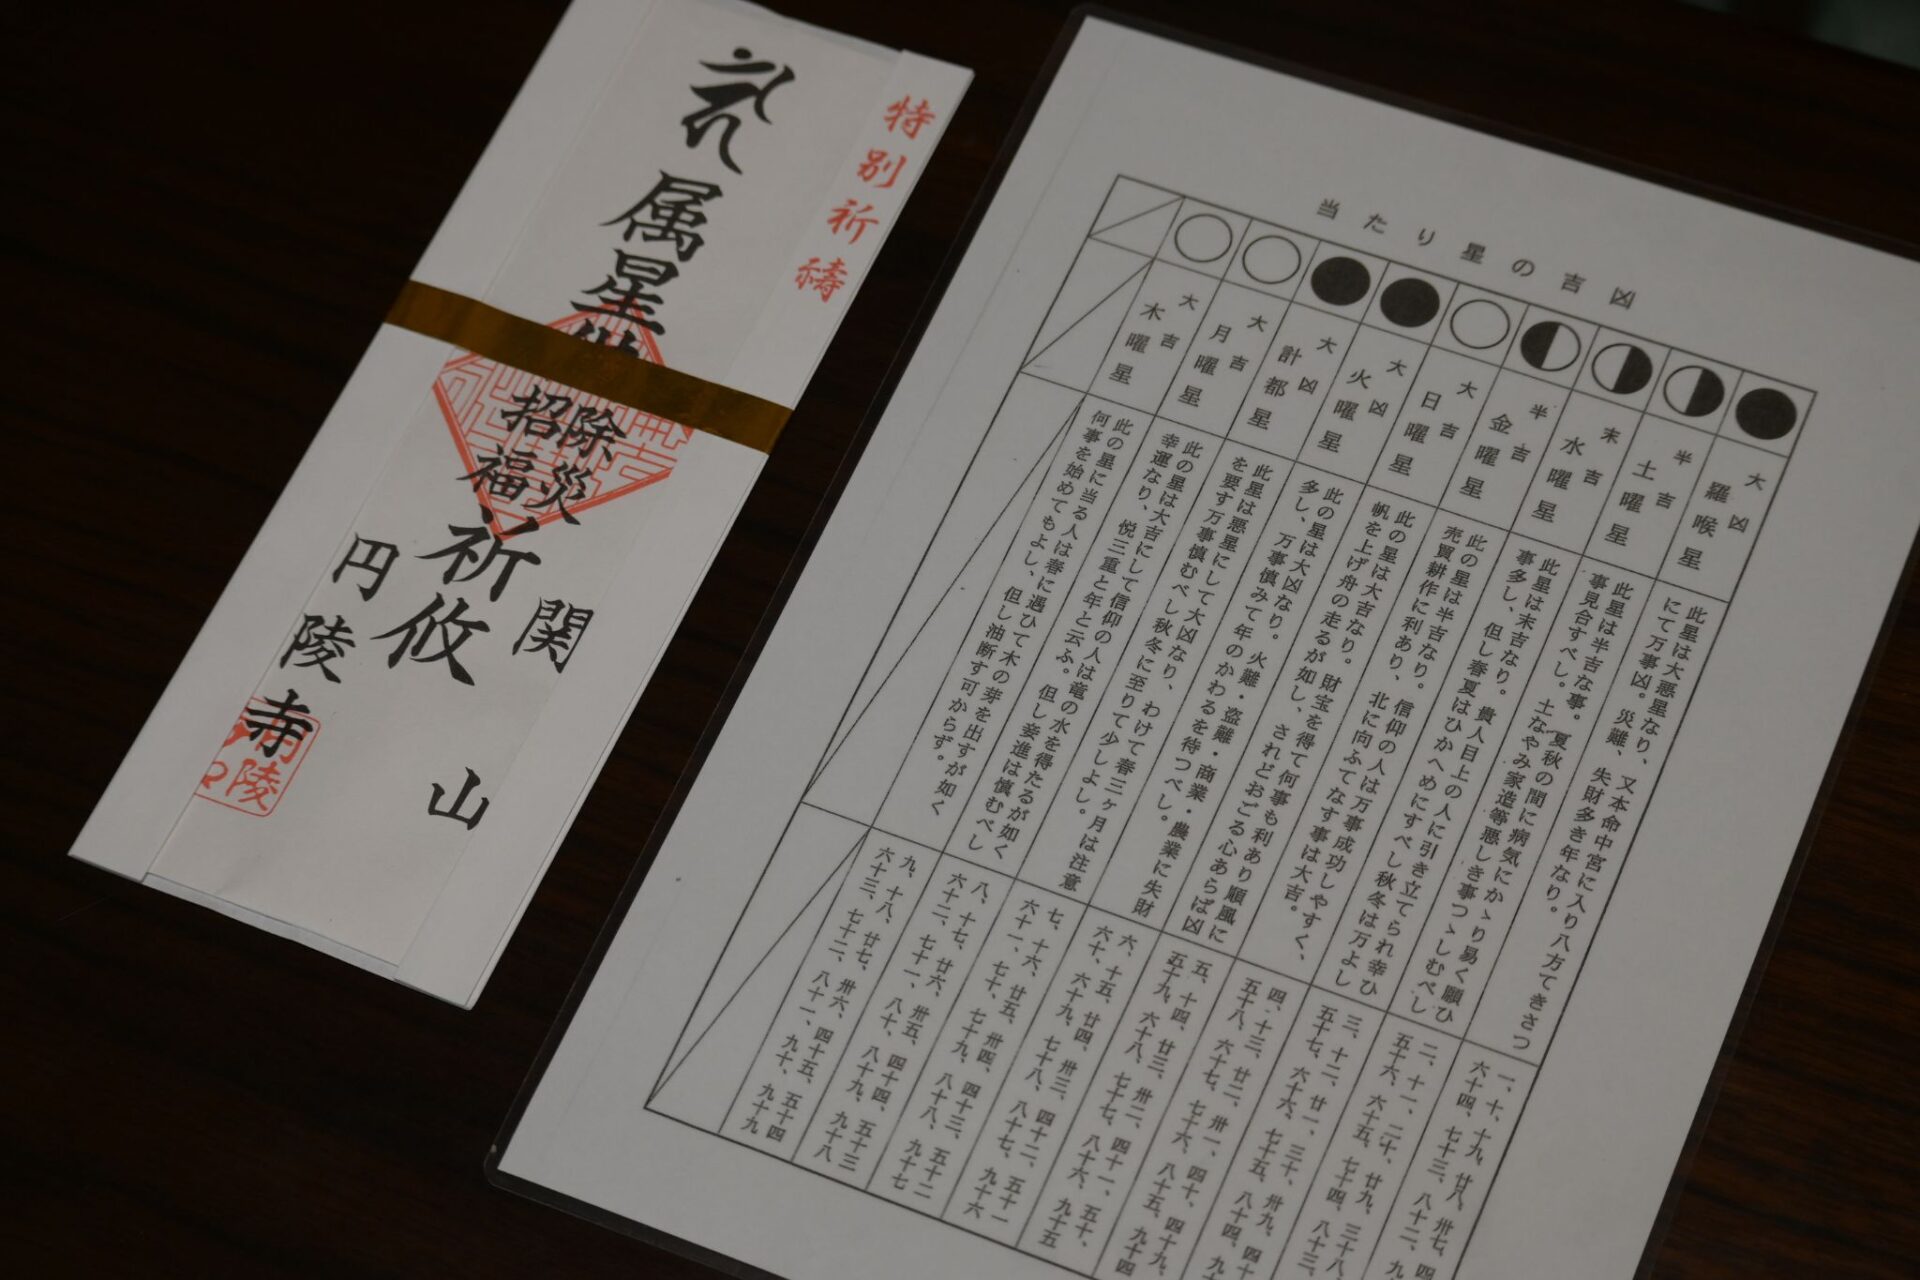 特別祈祷
属星供
除災
招福
祈攸
関山
円陵寺
当たり星の吉凶
大凶
羅喉星
此星は大悪星なり、又本命中宮に入り八方てきさつ
にて万事凶。災難、失財多き年なり。
一、十、十九、廿八、卅七、四
六十四、七十三、八十二、九
半吉
土曜星
此星は半吉な事。夏秋の間に病気にかゝり易く願ひ
事見合すべし。土なやみ家造等悪しき事つゝしむべし
二、十一、二十、廿九、三十八、
五十六、六十五、七十四、八十三、
末吉
水曜星
此星は末吉なり。貴人目上の人に引き立てられ幸ひ
事多し、但し春夏はひかへめにすべし秋冬は万よし
三、十二、廿一、三十、卅九、四十
五十七、六十六、七十五、八十四、九
半吉
金曜星
此の星は半吉なり。信仰の人は万事成功しやすく、
売買耕作に利あり、北に向ふてなす事は大吉。
四、十三、廿二、卅一、四十、四十九、
五十八、六十七、七十六、八十五、九十四
大吉
日曜星
此の星は大吉なり。財宝を得て何事も利あり順風に
帆を上げ舟の走るが如し、されどおごる心あらば凶
五、十四、廿三、卅二、四十一、五十、
五十九、六十八、七十七、八十六、九十五
大凶
火曜星
此の星は大凶なり。火難・盗難・商業・農業に失財
多し、万事慎みて年のかわるを待つべし。
六、十五、廿四、卅三、四十二、五十一
六十、六十九、七十八、八十七、九十六
大凶
計都星
此星は悪星にして大凶なり、わけて春三ヶ月は注意
を要す万事慎むべし秋冬に至りて少しよし。
七、十六、廿五、卅四、四十三、五十二
六十一、七十、七十九、八十八、九十七
大吉
月曜星
此の星は大吉にして信仰の人は竜の水を得たるが如く
幸運なり、悦三重と年と云ふ。但し妄進は慎むべし
八、十七、廿六、卅五、四十四、五十三
六十二、七十一、八十、八十九、九十八
大吉
木曜星
此の星に当る人は春に遇ひて木の芽を出すが如く
何事を始めてもよし、但し油断す可からず。
九、十八、廿七、卅六、四十五、五十四
六十三、七十二、八十一、九十、九十九